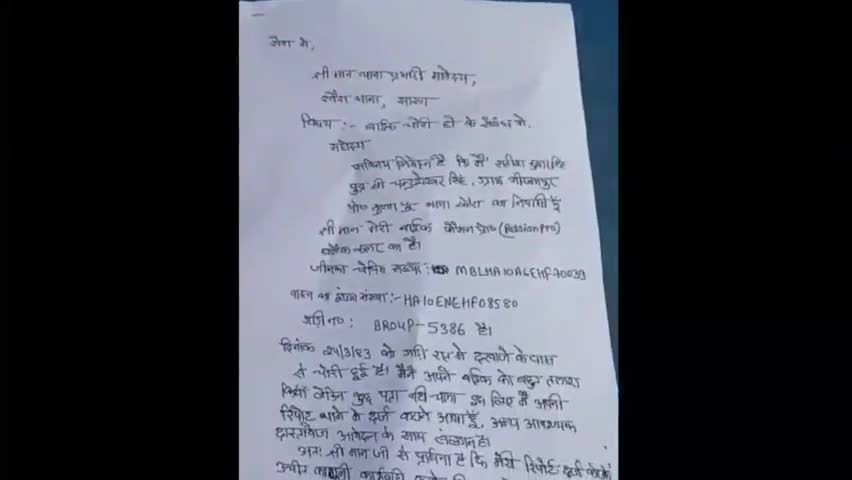 सेवा में,
श्री मान थाना प्रभारी महोदय,
थाना, सारण
विषय :- बाईक चोरी हो के संबंध में.
महोदय
सविनय निवेदन है कि मैं
पुत्र श्री चन्द्रशेखर सिंह, ग्राम
थाना का निवासी हूँ
श्री मान मेरी बाईक पैशन प्रो (Passion Pro)
ब्लैक कलर का है।
जिसका चेचिस संख्या : MBLHA10A6EHF70039
वाहन का इंजन संख्या :- HA10ENEHF08580
गाड़ी नं० : BR04P-5386 है।
दिनांक 24/3/23 को रात में दरवाजे के पास
से चोरी हुई है। मैंने अपने बाईक को बहुत तलाश
किया लेकिन कुछ पता नहीं चला इस लिए मैं अपनी
रिपोर्ट थाने में दर्ज कराने आया हूँ, अन्य आवश्यक
आवेदन के साथ संलग्न है।
अतः श्री मान जी से प्रार्थना है कि मेरी रिपोर्ट दर्ज